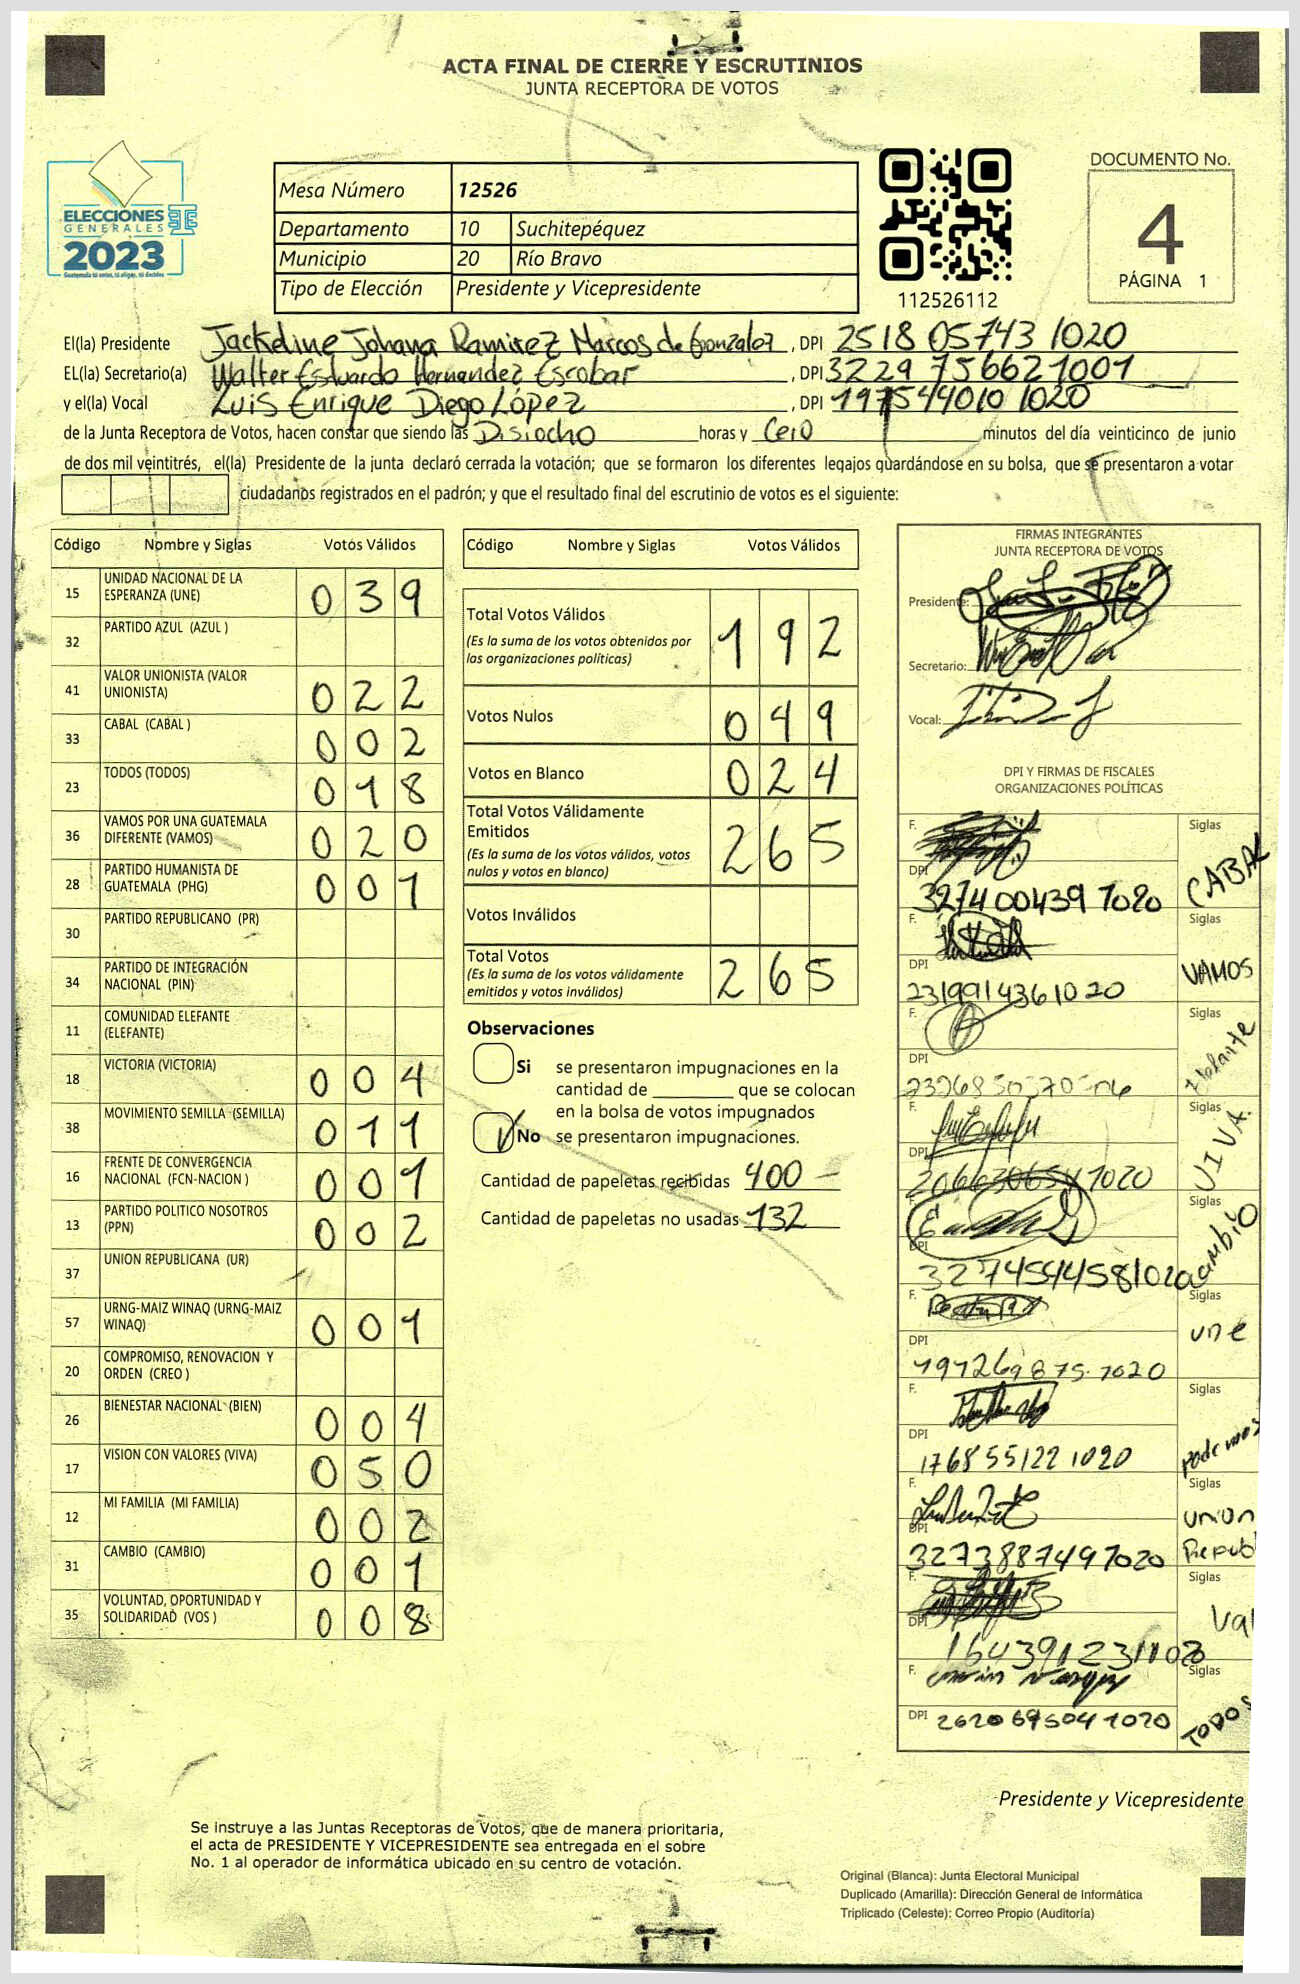 ACTA FINAL DE CIERRE Y ESCRUTINIOS
JUNTA RECEPTORA DE VOTOS
ELECCIONES
GENERALES
2023
Mesa Número 12526
Departamento 10 Suchitepéquez
Municipio 20 Río Bravo
Tipo de Elección Presidente y Vicepresidente
112526112
DOCUMENTO No.
4
PÁGINA 1
El(la) Presidente Jackeline Johana Ramirez Marcos de Gonzalez, DPI 2518 05743 1020
EL(la) Secretario(a) Walter Estuardo Hernandez Escobar, DPI 3229 75662 1001
y el(la) Vocal Luis Enrique Diego López, DPI 1975 44010 1020
de la Junta Receptora de Votos, hacen constar que siendo las Disiocho horas y Cero minutos del día veinticinco de junio
de dos mil veintitrés, el(la) Presidente de la junta declaró cerrada la votación; que se formaron los diferentes legajos guardándose en su bolsa, que se presentaron a votar
ciudadanos registrados en el padrón; y que el resultado final del escrutinio de votos es el siguiente:
Código Nombre y Siglas Votos Válidos
15 UNIDAD NACIONAL DE LA ESPERANZA (UNE) 039
32 PARTIDO AZUL (AZUL )
41 VALOR UNIONISTA (VALOR UNIONISTA) 022
33 CABAL (CABAL ) 002
23 TODOS (TODOS) 018
36 VAMOS POR UNA GUATEMALA DIFERENTE (VAMOS) 020
28 PARTIDO HUMANISTA DE GUATEMALA (PHG) 001
30 PARTIDO REPUBLICANO (PR)
34 PARTIDO DE INTEGRACIÓN NACIONAL (PIN)
11 COMUNIDAD ELEFANTE (ELEFANTE)
18 VICTORIA (VICTORIA) 004
38 MOVIMIENTO SEMILLA (SEMILLA) 011
16 FRENTE DE CONVERGENCIA NACIONAL (FCN-NACION ) 001
13 PARTIDO POLITICO NOSOTROS (PPN) 002
37 UNION REPUBLICANA (UR)
57 URNG-MAIZ WINAQ (URNG-MAIZ WINAQ) 001
20 COMPROMISO, RENOVACION Y ORDEN (CREO )
26 BIENESTAR NACIONAL (BIEN) 004
17 VISION CON VALORES (VIVA) 050
12 MI FAMILIA (MI FAMILIA) 002
31 CAMBIO (CAMBIO) 001
35 VOLUNTAD, OPORTUNIDAD Y SOLIDARIDAD (VOS ) 008
Código Nombre y Siglas Votos Válidos
Total Votos Válidos 192
(Es la suma de los votos obtenidos por
las organizaciones políticas)
Votos Nulos 049
Votos en Blanco 024
Total Votos Válidamente
Emitidos 265
(Es la suma de los votos válidos, votos
nulos y votos en blanco)
Votos Inválidos
Total Votos 265
(Es la suma de los votos válidamente
emitidos y votos inválidos)
Observaciones
Si se presentaron impugnaciones en la
cantidad de ________ que se colocan
en la bolsa de votos impugnados
No se presentaron impugnaciones.
Cantidad de papeletas recibidas 400
Cantidad de papeletas no usadas 132
FIRMAS INTEGRANTES
JUNTA RECEPTORA DE VOTOS
Presidente:
Secretario:
Vocal:
DPI Y FIRMAS DE FISCALES
ORGANIZACIONES POLÍTICAS
F. Siglas CABAL
DPI 3274 00439 1020
F. Siglas VAMOS
DPI 2319914361020
F. Siglas
DPI
F. Siglas VIVA
DPI
F. Siglas Cambio
DPI 3274545581020
F. Siglas une
DPI 191269875 1020
F. Siglas podemos
DPI 1768 55122 1020
F. Siglas union Repub
DPI 3273887491020
F. Siglas Val
DPI
F. Siglas TODOS
DPI 2620695041020
Presidente y Vicepresidente
Se instruye a las Juntas Receptoras de Votos, que de manera prioritaria,
el acta de PRESIDENTE Y VICEPRESIDENTE sea entregada en el sobre
No. 1 al operador de informática ubicado en su centro de votación.
Original (Blanca): Junta Electoral Municipal
Duplicado (Amarilla): Dirección General de Informática
Triplicado (Celeste): Correo Propio (Auditoría)